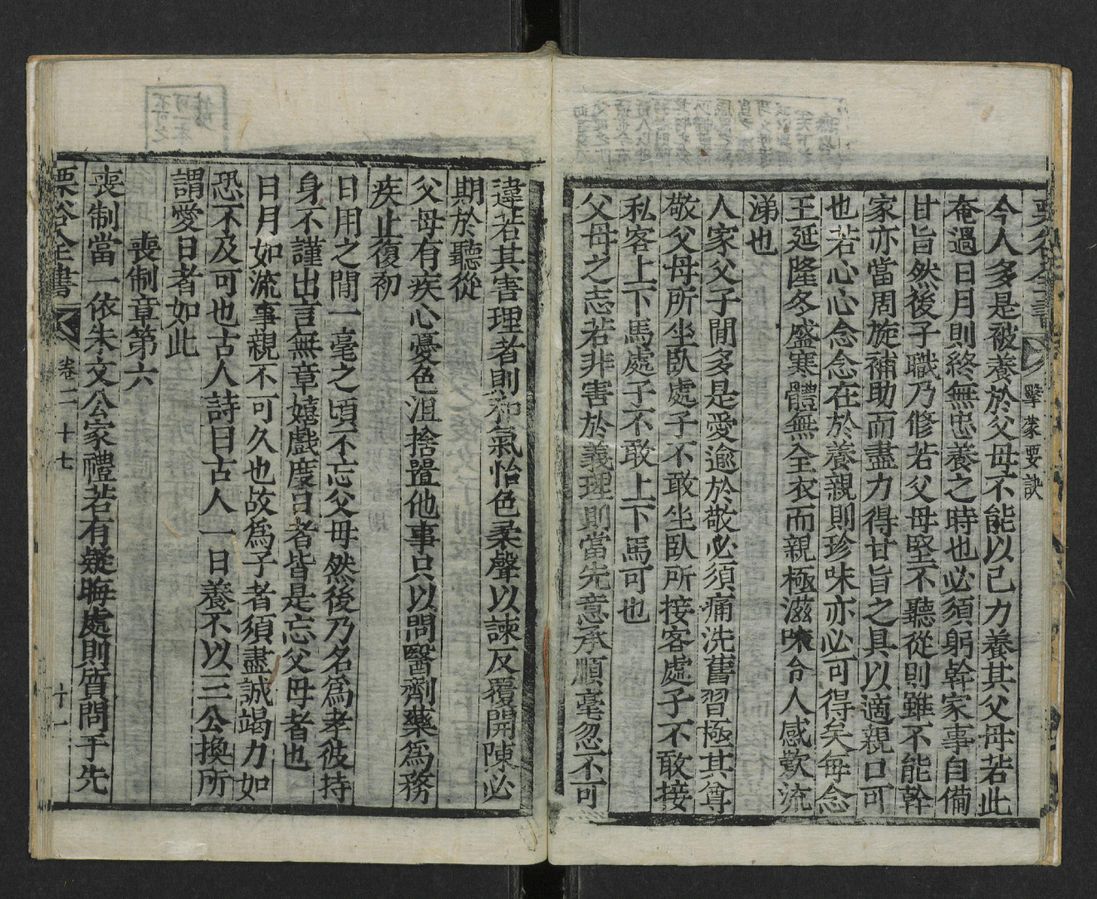 擊蒙要訣
今人多是被養於父母不能以己力養其父母若此
奄過日月則終無忠養之時也必須躬幹家事自備
甘旨然後子職乃修若父母堅不聽從則雖不能幹
家亦當周旋補助而盡力得甘旨之具以適親口可
也若心心念念在於養親則珍味亦必可得矣每念
王延隆冬盛寒體無全衣而親極滋味令人感歎流
涕也
人家父子間多是愛逾於敬必須痛洗舊習極其尊
敬父母所坐臥處子不敢坐臥所接客處子不敢接
私客上下馬處子不敢上下馬可也
父母之志若非害於義理則當先意承順毫忽不可
違若其害理者則和氣怡色柔聲以諫反覆開陳必
期於聽從
父母有疾心憂色沮捨置他事只以問醫劑藥爲務
疾止復初
日用之間一毫之頃不忘父母然後乃名爲孝彼持
身不謹出言無章嬉戲度日者皆是忘父母者也
日月如流事親不可久也故爲子者須盡誠竭力如
恐不及可也古人詩曰古人一日養不以三公換所
謂愛日者如此
喪制章第六
喪制當一依朱文公家禮若有疑晦處則質問于先
栗谷全書 卷二 十七 十一